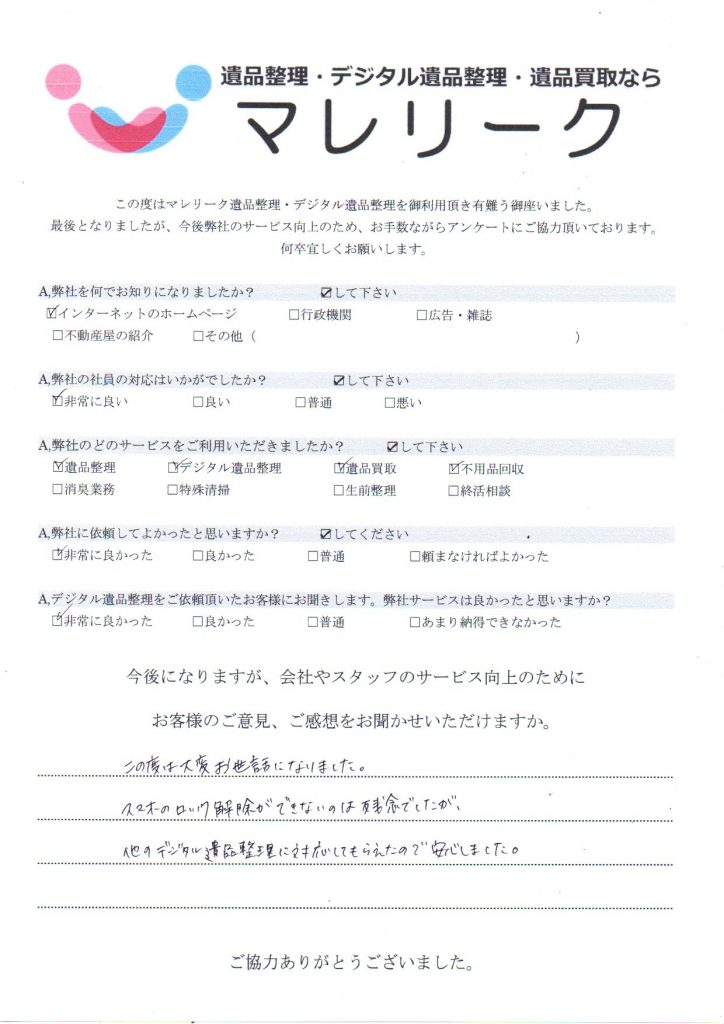 遺品整理・デジタル遺品整理・遺品買取なら
マレリーク
この度はマレリーク遺品整理・デジタル遺品整理を御利用頂き有難う御座いました。
最後となりましたが、今後弊社のサービス向上のため、お手数ながらアンケートにご協力頂いております。
何卒宜しくお願いします。
A,弊社を何でお知りになりましたか？ ☑して下さい
☑インターネットのホームページ □行政機関 □広告・雑誌
□不動産屋の紹介 □その他（ ）
A,弊社の社員の対応はいかがでしたか？ ☑して下さい
☑非常に良い □良い □普通 □悪い
A,弊社のどのサービスをご利用いただきましたか？ ☑して下さい
☑遺品整理 ☑デジタル遺品整理 ☑遺品買取 ☑不用品回収
□消臭業務 □特殊清掃 □生前整理 □終活相談
A,弊社に依頼してよかったと思いますか？ ☑してください
☑非常に良かった □良かった □普通 □頼まなければよかった
A,デジタル遺品整理をご依頼頂いたお客様にお聞きします。弊社サービスは良かったと思いますか？
☑非常に良かった □良かった □普通 □あまり納得できなかった
今後になりますが、会社やスタッフのサービス向上のために
お客様のご意見、ご感想をお聞かせいただけますか。
この度は大変お世話になりました。
スマホのロック解除ができないのは残念でしたが、
他のデジタル遺品整理に対応してもらえたので安心しました。
ご協力ありがとうございました。